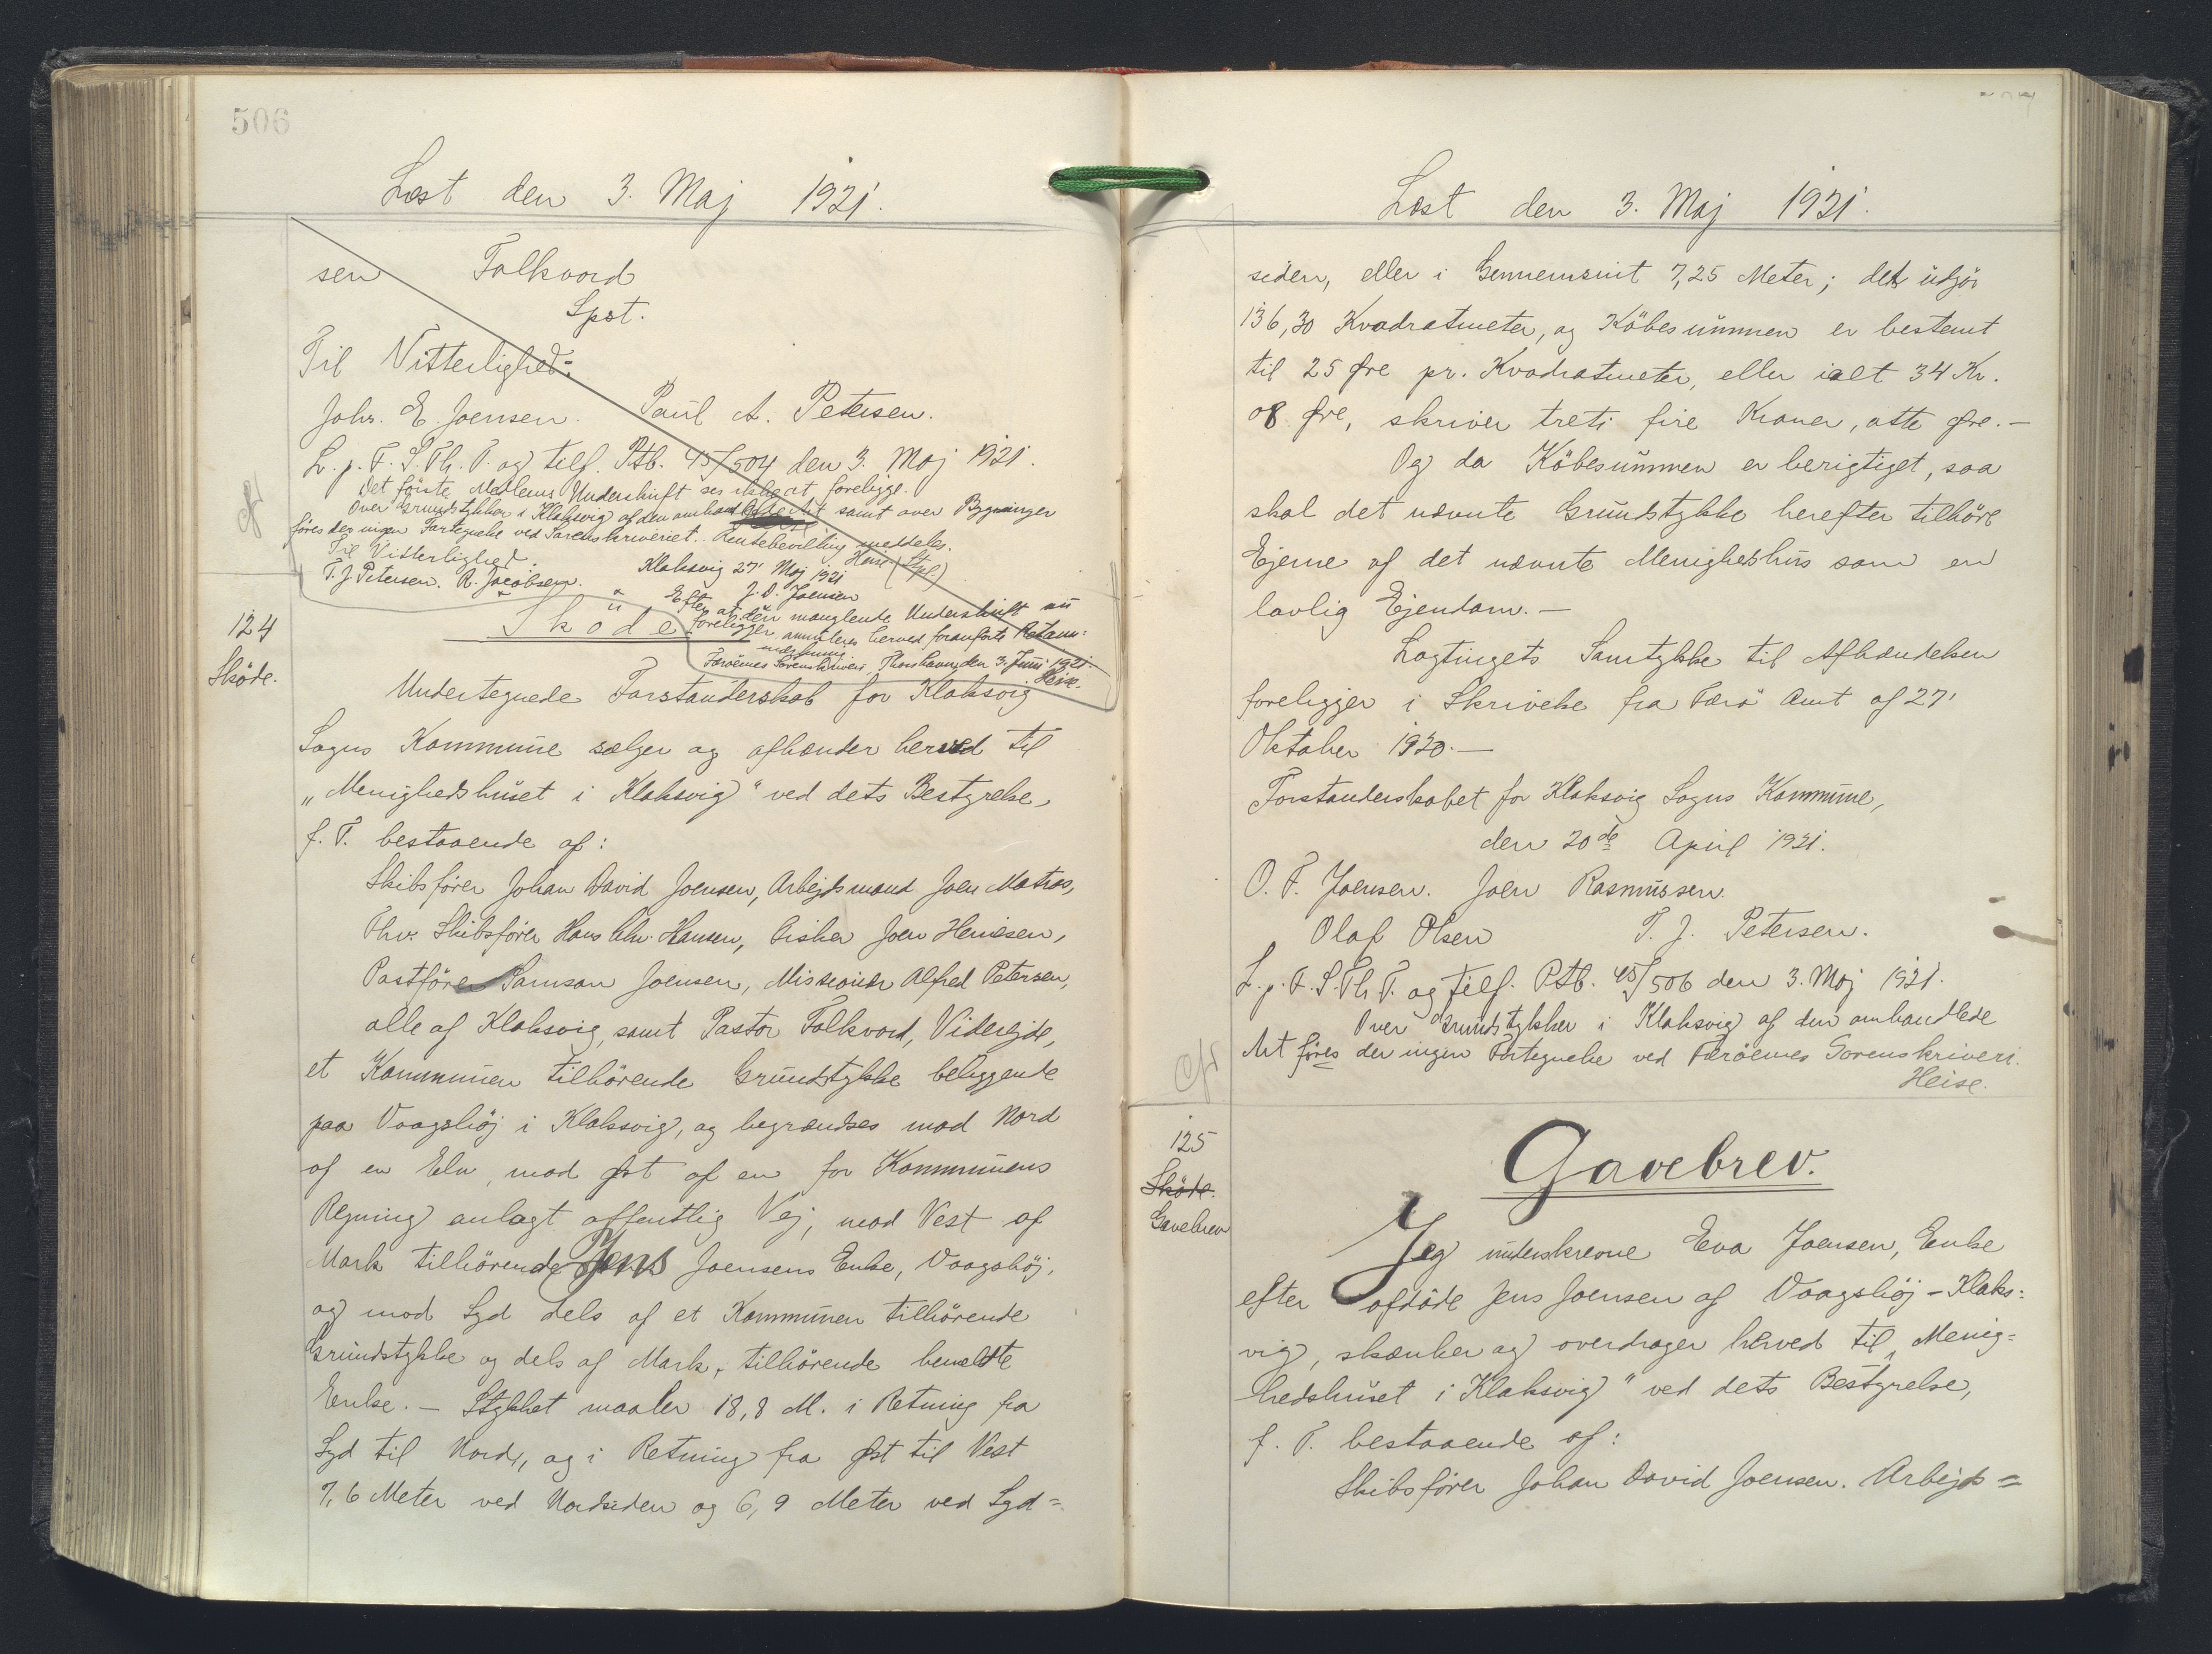 506
Læst den 3. Maj 1921.
sen Falkvard
Spst.
Til Vitterlighed:
Johs. E. Joensen. Paul A. Petersen.
L. p. F. S. Th. T. og tilf. Ptb. 45/504 den 3. Maj 1921.
Det første Medlems Underskrift ses ikke at foreligge.
Over Grundstykker i Klaksvig af den omhandlede Art samt over Bygninger
føres der ingen Fortegnelse ved Sorenskriveriet. Rentebevilling meddeles.
Heise (Spl.)
Til Vitterlighed.
T. J. Petersen. R. Jacobsen.
Klaksvig 27' Maj 1921
J. D. Joensen
Efter at den manglende Underskrift nu
foreligger annulleres herved foranførte Retsan=
mærkning.
Færöernes Sorenskriveri, Thorshavn, den 3. Juni 1921.
Heise.
124
Sköde.
Sköde.
Undertegnede Forstanderskab for Klaksvig
Sogns Kommune sælger og afhænder herved til
"Menighedshuset i Klaksvig" ved dets Bestyrelse,
f. T. bestaaende af:
Skibsförer Johan David Joensen, Arbejdsmand Joen Matras,
Fhv. Skibsförer Hans Chr. Hansen, Fisker Joen Heinesen,
Postförer Samson Joensen, Missionær Alfred Petersen,
alle af Klaksvig, samt Pastor Falkvard, Viderejde,
et Kommunen tilhörende Grundstykke beliggende
paa Vaagshöj i Klaksvig, og begrændses mod Nord
af en Elv, mod Øst af en for Kommunens
Regning anlagt offentlig Vej, mod Vest af
Mark tilhörende Jens Joensens Enke, Vaagshöj,
og mod Syd dels af et Kommunen tilhörende
Grundstykke og dels af Mark, tilhörende bemeldte
Enke. — Stykket maaler 18,8 M. i Retning fra
Syd til Nord, og i Retning fra Øst til Vest
7,6 Meter ved Nordsiden og 6,9 Meter ved Syd=
Læst den 3. Maj 1921.
siden, eller i Gennemsnit 7,25 Meter; det udgör
136,30 Kvadratmeter, og Köbesummen er bestemt
til 25 Øre pr. Kvadratmeter, eller ialt 34 Kr.
08 Øre, skriver treti fire Kroner, otte Øre. —
Og da Köbesummen er berigtiget, saa
skal det nævnte Grundstykke herefter tilhöre
Ejerne af det nævnte Menighedshus som en
lovlig Ejendom. —
Lagtingets Samtykke til Afhændelsen
foreligger i Skrivelse fra Færö Amt af 27'
Oktober 1920. —
Forstanderskabet for Klaksvig Sogns Kommune,
den 20de April 1921.
O. F. Joensen. Joen Rasmussen.
Olaf Olsen T. J. Petersen.
L. p. F. S. Th. T. og tilf. Ptb. 45/506 den 3. Maj 1921.
Over Grundstykker i Klaksvig af den omhandlede
Art føres der ingen Fortegnelse ved Færöernes Sorenskriveri.
Heise.
125
Sköde.
Gavebrev
Gavebrev.
Jeg underskrevne Eva Joensen, Enke
efter afdöde Jens Joensen af Vaagshöj - Klaks=
vig, skænker og overdrager herved til "Menig=
hedshuset i Klaksvig" ved dets Bestyrelse,
f. T. bestaaende af:
Skibsförer Johan David Joensen. Arbejds=